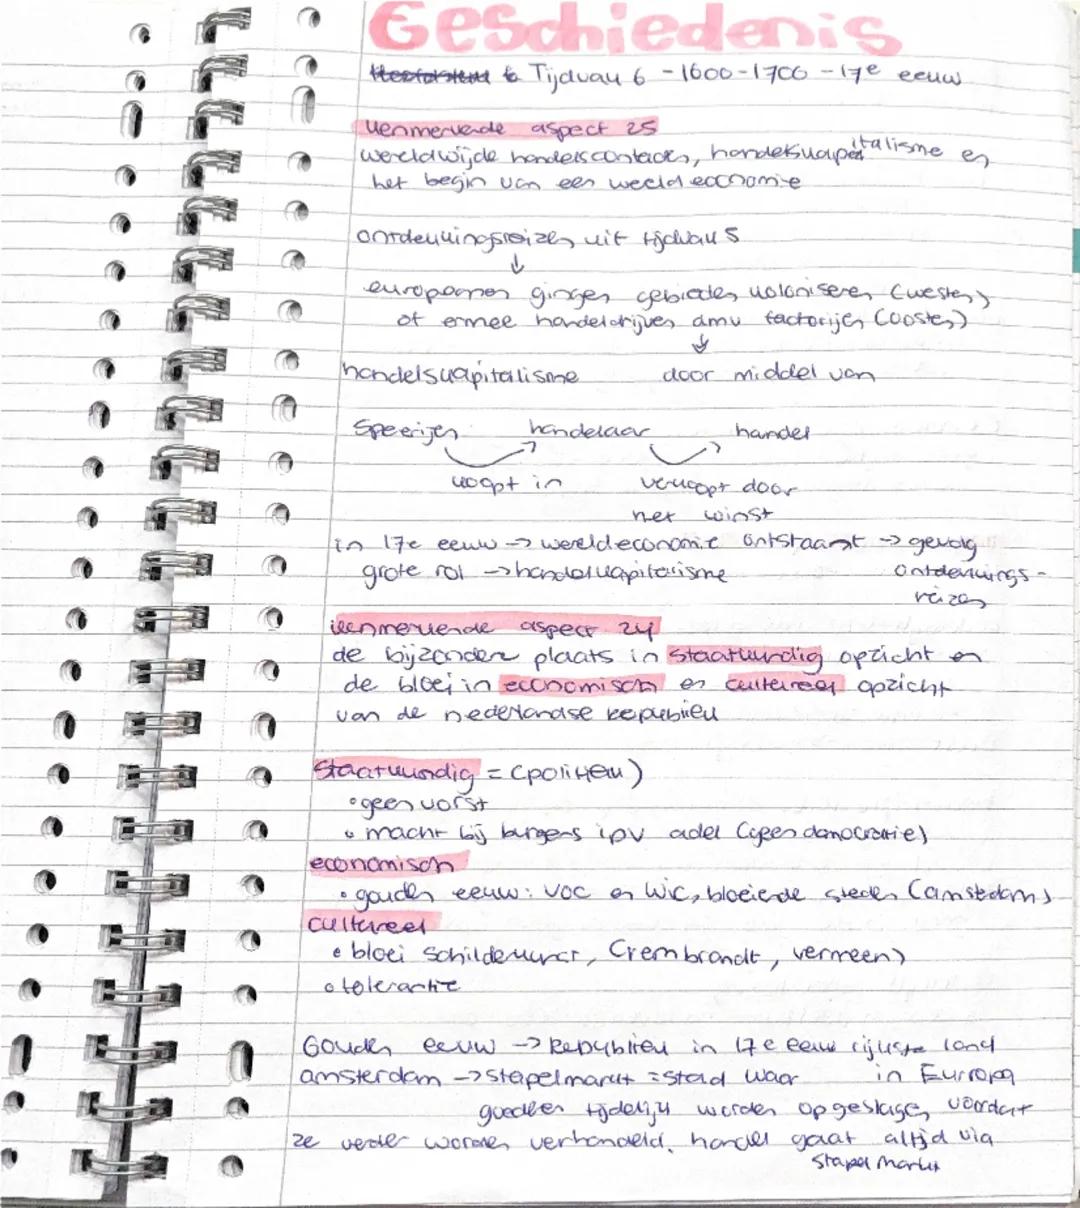 Geschiedenis
Hoofdstuk 6 Tijdvak 6 - 1600-1700 - 17e eeuw
kenmerkende aspect 25
wereldwijde handelscontacten, handelskapitalisme en
het begin van een wereldeconomie
ontdekkingsreizen uit tijdvak 5
↓
europeanen gingen gebieden koloniseren (westen)
of ermee handeldrijven dmv factorijen (oosten)
↓
handelskapitalisme door middel van
Specerijen handelaar handel
koopt in verkoopt door
met winst
in 17e eeuw → wereldeconomie ontstaat → gevolg
grote rol → handelskapitalisme ontdekkings-
reizen
kenmerkende aspect 24
de bijzondere plaats in staatkundig opzicht en
de bloei in economisch en cultureel opzicht
van de nederlandse republiek
Staatkundig = (politiek)
• geen vorst
• macht bij burgers ipv adel (geen democratie)
economisch
• gouden eeuw: VOC en WIC, bloeiende steden (amsterdam)
cultureel
• bloei schilderkunst, (rembrandt, vermeer)
• tolerantie
Gouden eeuw → Republiek in 17e eeuw rijkste land
amsterdam → stapelmarkt = stad waar in Europa
goederen tijdelijk werden opgeslagen voordat
ze verder worden verhandeld. handel gaat altijd via
stapelmarkt